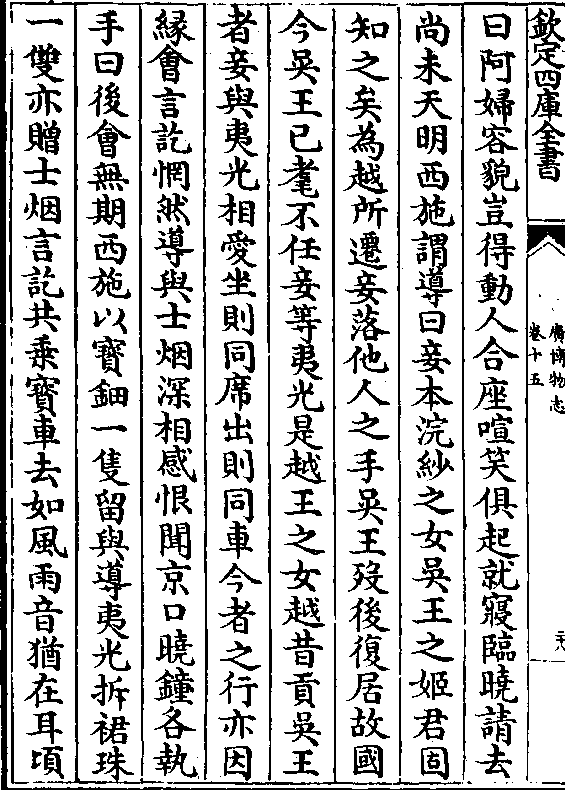 欽定四庫全書
廣博物志
卷十五
二十八
曰阿婦容貌豈得動人合座喧笑俱起就寢臨曉請去
尚未天明西施謂導曰妾本浣紗之女吳王之姬君固
知之矣為越所遷妾落他人之手吳王歿後復居故國
今吳王已耄不任妾等夷光是越王之女越昔貢吳王
者妾與夷光相愛坐則同席出則同車今者之行亦因
緣會言訖惘然導與士烟深相感恨聞京口曉鐘各執
手曰後會無期西施以寶鈿一隻留與導夷光拆裙珠
一雙亦贈士烟言訖共乘寶車去如風雨音猶在耳頃